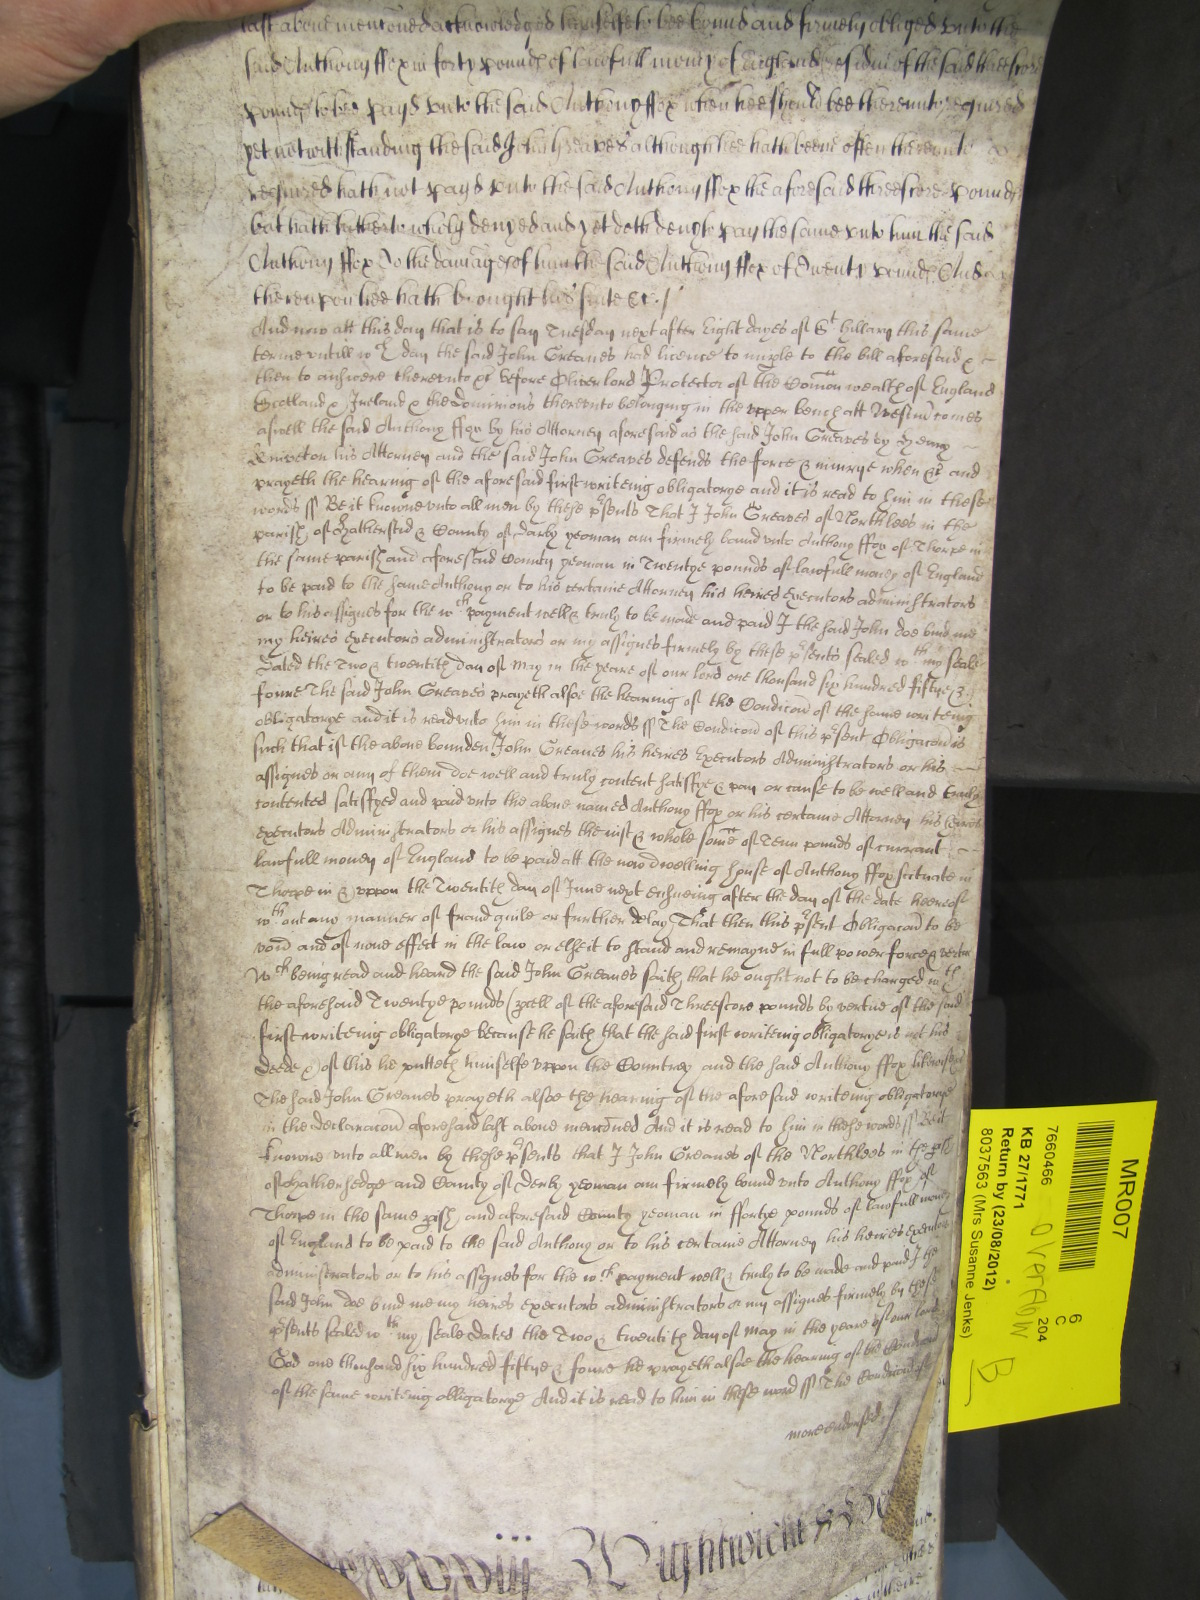 last above mentioned acknowledged himselfe to bee bound and firmely obliged unto the
said Anthony ffox in forty pounds of lawfull money of England residue of the said threescore
pounds to bee payd unto the said Anthony ffox when hee should bee thereunto required
yet notwithstanding the said John Greaves although hee hath beene often thereunto
required hath not payd unto the said Anthony ffox the aforesaid threescore pounds
but hath hitherto wholy denyed and yet doth deny to pay the same unto him the said
Anthony ffox To the damage of him the said Anthony ffox of Twenty pounds And
thereupon hee hath brought his suite &c./
And now att this day that is to say Tuesday next after Eight dayes of St hillary this same
terme untill wch day the said John Greaves had licence to imple to the bill aforesaid &
then to answere thereunto &c before Oliver lord Protector of the Comon wealth of England
Scotland & Ireland & the dominions thereunto belonging in the upper bench att Westmr comes
aswell the said Anthony ffox by his Attorney aforesaid as the said John Greaves by Henry
his Attorney and the said John Greaves defends the force & iniurye when &c and
prayeth the hearing of the aforesaid first writeing obligatorye and it is read to him in these
words ss Be it knowne unto all men by these psents That I John Greaves of Northlees in the
parish of Hathersid & County of Darby yeoman am firmely bound unto Anthony ffox of Thorpe in
the same parish and aforesaid County yeoman in Twentye pounds of lawfull money of England
to be paid to the same Anthony or to his certaine Attorney his heires executors administrators
or to his assignes for the wch payment well & truly to be made and paid I the said John doe bind me
my heires executors administrators or my assignes firmely by these psents sealed wth my seale
Dated the Two & twentith day of May in the yeare of our lord one thousand six hundred fiftye &
foure The said John Greaves prayeth alsoe the hearing of the Condicon of the same writeing
obligatorye and it is read unto him in these words ss The Condicon of this psent Obligacon is
such that if the above bounden John Greaves his heires Executors Administrators or his
assignes or any of them doe well and truly content satisfye & pay or cause to be well and truly
contented satisfyed and paid unto the above named Anthony ffox or his certaine Attorney his heires
executors Administrators or his assignes the iust & whole some of Tenn pounds of currant
lawfull money of England to be paid att the now dwelling house of Anthony ffox scituate in
Thorpe in & uppon the Twentith day of June next ensueing after the day of the date heereof
wth out any manner of fraud guile or further delay That then this psent Obligacon to be
void and of none effect in the law or else it to stand and remayne in full power force & vertue
Wch being read and heard the said John Greaves saith that he ought not to be charged wth
the aforesaid Twentye pounds pcell of the aforesaid Threescore pounds by vertue of the said
first writeing obligatorye because he saith that the said first writeing obligatorye is not his
deede & of this he putteth himselfe uppon the Countrey and the said Anthony ffox likewise &
The said John Greaves prayeth alsoe the hearing of the aforesaid writeing obligatorye
in the declaracon aforesaid last above menconed And it is read to him in these words ss Be it
knowne unto all men by these psents that I John Greaves of the Northlees in the pish
of Hathersedge and County of Derby yeoman am firmely bound unto Anthony ffox of
Thorpe in the same pish and aforesaid County yeoman in ffortye pounds of lawfull money
of England to be paid to the said Anthony or to his certaine Attorney his heires executors
administrators or to his assignes for the wch payment well & truly to be made and paid I the
said John doe bind me my heires executors administrators or my assignes firmely by these
psents sealed wth my seale Dated the Two & twentith day of May in the yeare of our lord
God one thousand six hundred fiftye & foure he prayeth alsoe the hearing of the Condicon
of the same writeing obligatorye And it is read to him in these word ss The Condicon of
more endorsed
MR007
6
C
204
7660466
KB 27/1771
Return by (23/08/2012)
8037563 (Mrs Susanne Jenks)
overAbW
B